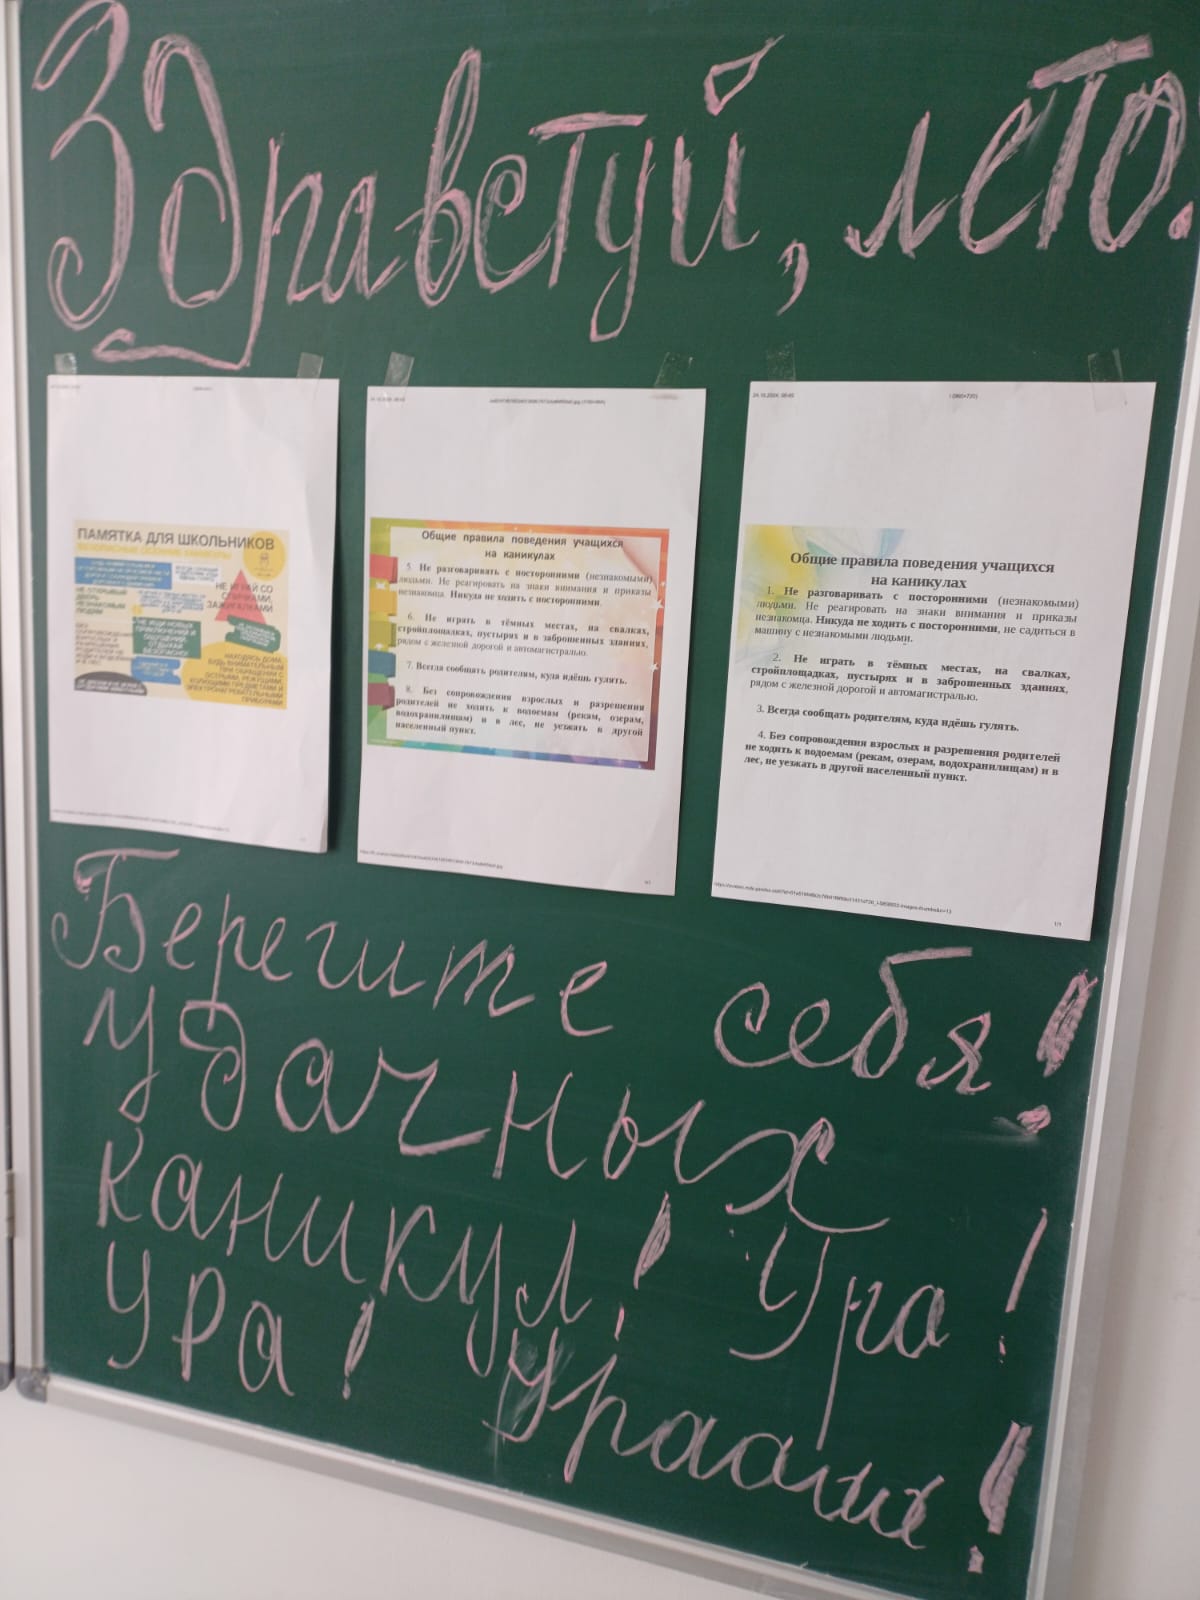 Здравстуй, лето.
24.10.2024, 08:45
ПАМЯТКА ДЛЯ ШКОЛЬНИКОВ
БЕЗОПАСНЫЕ ОСЕННИЕ КАНИКУЛЫ
НЕ ИГРАЙ СО
СПИЧКАМИ,
ЗАЖИГАЛКАМИ
НЕ ОТКРЫВАЙ
ДВЕРЬ
НЕЗНАКОМЫМ
ЛЮДЯМ
НЕ ИЩИ НОВЫХ
ПРИКЛЮЧЕНИЙ И
ОЩУЩЕНИЙ,
ОТДЫХАЙ
БЕЗОПАСНО!
НАХОДЯСЬ ДОМА,
БУДЬ ВНИМАТЕЛЬНЫМ
ПРИ ОБРАЩЕНИИ С
ОСТРЫМИ, РЕЖУЩИМИ,
КОЛЮЩИМИ ПРЕДМЕТАМИ И
ЭЛЕКТРОНАГРЕВАТЕЛЬНЫМИ
ПРИБОРАМИ
Общие правила поведения учащихся
на каникулах
5. Не разговаривать с посторонними (незнакомыми)
людьми. Не реагировать на знаки внимания и приказы
незнакомца. Никуда не ходить с посторонними.
6. Не играть в тёмных местах, на свалках,
стройплощадках, пустырях и в заброшенных зданиях,
рядом с железной дорогой и автомагистралью.
7. Всегда сообщать родителям, куда идёшь гулять.
8. Без сопровождения взрослых и разрешения
родителей не ходить к водоемам (рекам, озерам,
водохранилищам) и в лес, не уезжать в другой
населенный пункт.
24.10.2024, 08:45
Общие правила поведения учащихся
на каникулах
1. Не разговаривать с посторонними (незнакомыми)
людьми. Не реагировать на знаки внимания и приказы
незнакомца. Никуда не ходить с посторонними, не садиться в
машину с незнакомыми людьми.
2. Не играть в тёмных местах, на свалках,
стройплощадках, пустырях и в заброшенных зданиях,
рядом с железной дорогой и автомагистралью.
3. Всегда сообщать родителям, куда идёшь гулять.
4. Без сопровождения взрослых и разрешения родителей
не ходить к водоемам (рекам, озерам, водохранилищам) и в
лес, не уезжать в другой населенный пункт.
1/1
Берегите себя!
удачных
каникул! Ура!
Ура!